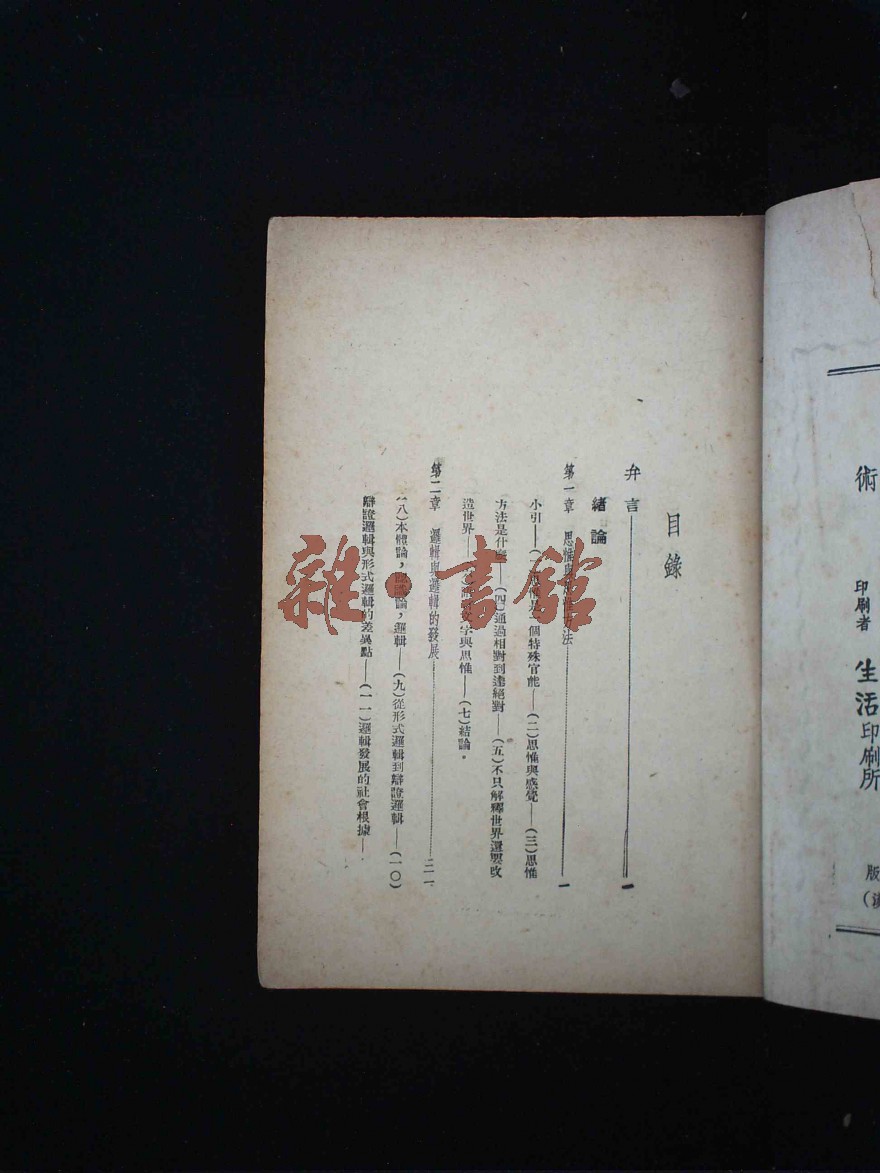 術
印刷者 生活印刷所
版
目錄
弁言 一
緒論
第一章 思惟與思惟方法 一
小引——(一)思惟是一個特殊官能——(二)思惟與感覺——(三)思惟
方法是什麼——(四)通過相對到達絕對——(五)不只解釋世界還要改
造世界——文字與思惟——(七)結論。
第二章 邏輯與邏輯的發展 二一
(八)本體論,認識論,邏輯——(九)從形式邏輯到辯證邏輯——(一〇)
辯證邏輯與形式邏輯的差異點——(一一)邏輯發展的社會根據——
雜·書館